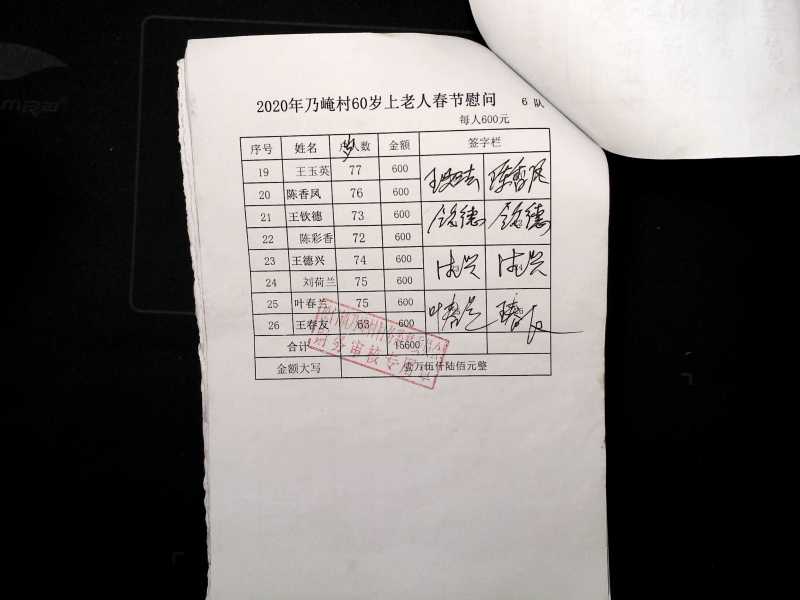 2020年乃崦村60岁上老人春节慰问 6 队
每人600元
序号 姓名 人数 金额 签字栏
19 王玉英 77 600
20 陈香凤 76 600 陈香凤
21 王钦德 73 600 钦德 钦德
22 陈彩香 72 600
23 王德兴 74 600 德兴 德兴
24 刘荷兰 75 600
25 叶春兰 75 600 叶春兰
26 王春友 63 600
合计 15600
金额大写 壹万伍仟陆佰元整
财务审核专用章